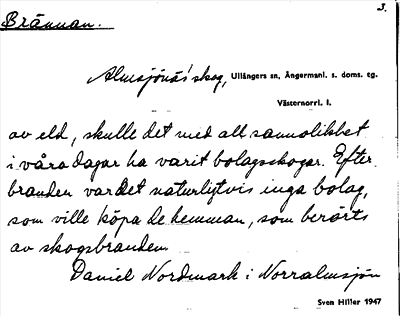 3.
Brännan.
Almsjönäs' skog, Ullångers sn, Ångermanl. s. doms. tg.
Västernorrl. l.
av eld, skulle det med all sannolikhet
i våra dagar ha varit bolagsskogar. Efter
branden var det naturligtvis inga bolag,
som ville köpa de hemman, som berörts
av skogsbranden
Daniel Nordmark i Norralmsjön
Sven Hiller 1947